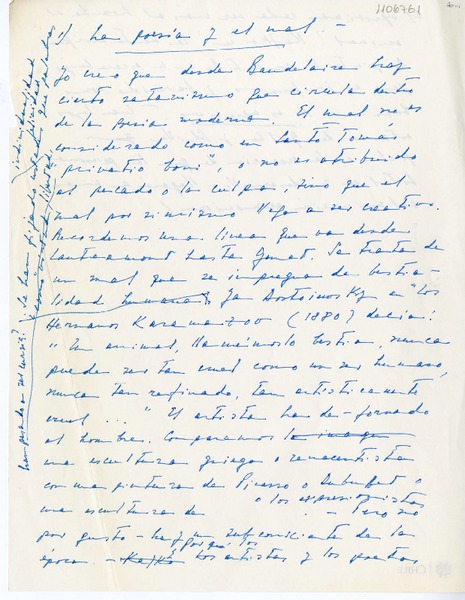 1106761
1) La poesía y el mal -
Yo creo que desde Baudelaire hay
cierto satanismo que circula dentro
de la poesía moderna. El mal no es
considerado como un Santo Tomás
"privatio boni", o no es atribuido
al pecado o la culpa, sino que el
mal por si mismo llega a ser creativo.
Recordemos una línea que va desde
Lautreamont hasta Genet. Se trata de
un mal que se impregna de bestia-
lidad humana. Ya Dostoievsky en "Los
Hermanos Karamazov (1880) decía:
"Un animal, llamémoslo bestia, nunca
puede ser tan cruel como un ser humano,
nunca tan refinado, tan artísticamente
cruel..." El artista ha de-formado
al hombre. Comparemos la imagen
una escultura griega o renacentista
con una pintura de Picasso o Dubuffet o
una escultura de o los expresionistas
- Pero no
por gusto - hay un subconsciente de la
época. - Kafka Los artistas y los poetas
y por qué los
han pasado a ser cursis? Se han fijado ustedes que palabras
como libertad, felicidad
individualidad
CHILE